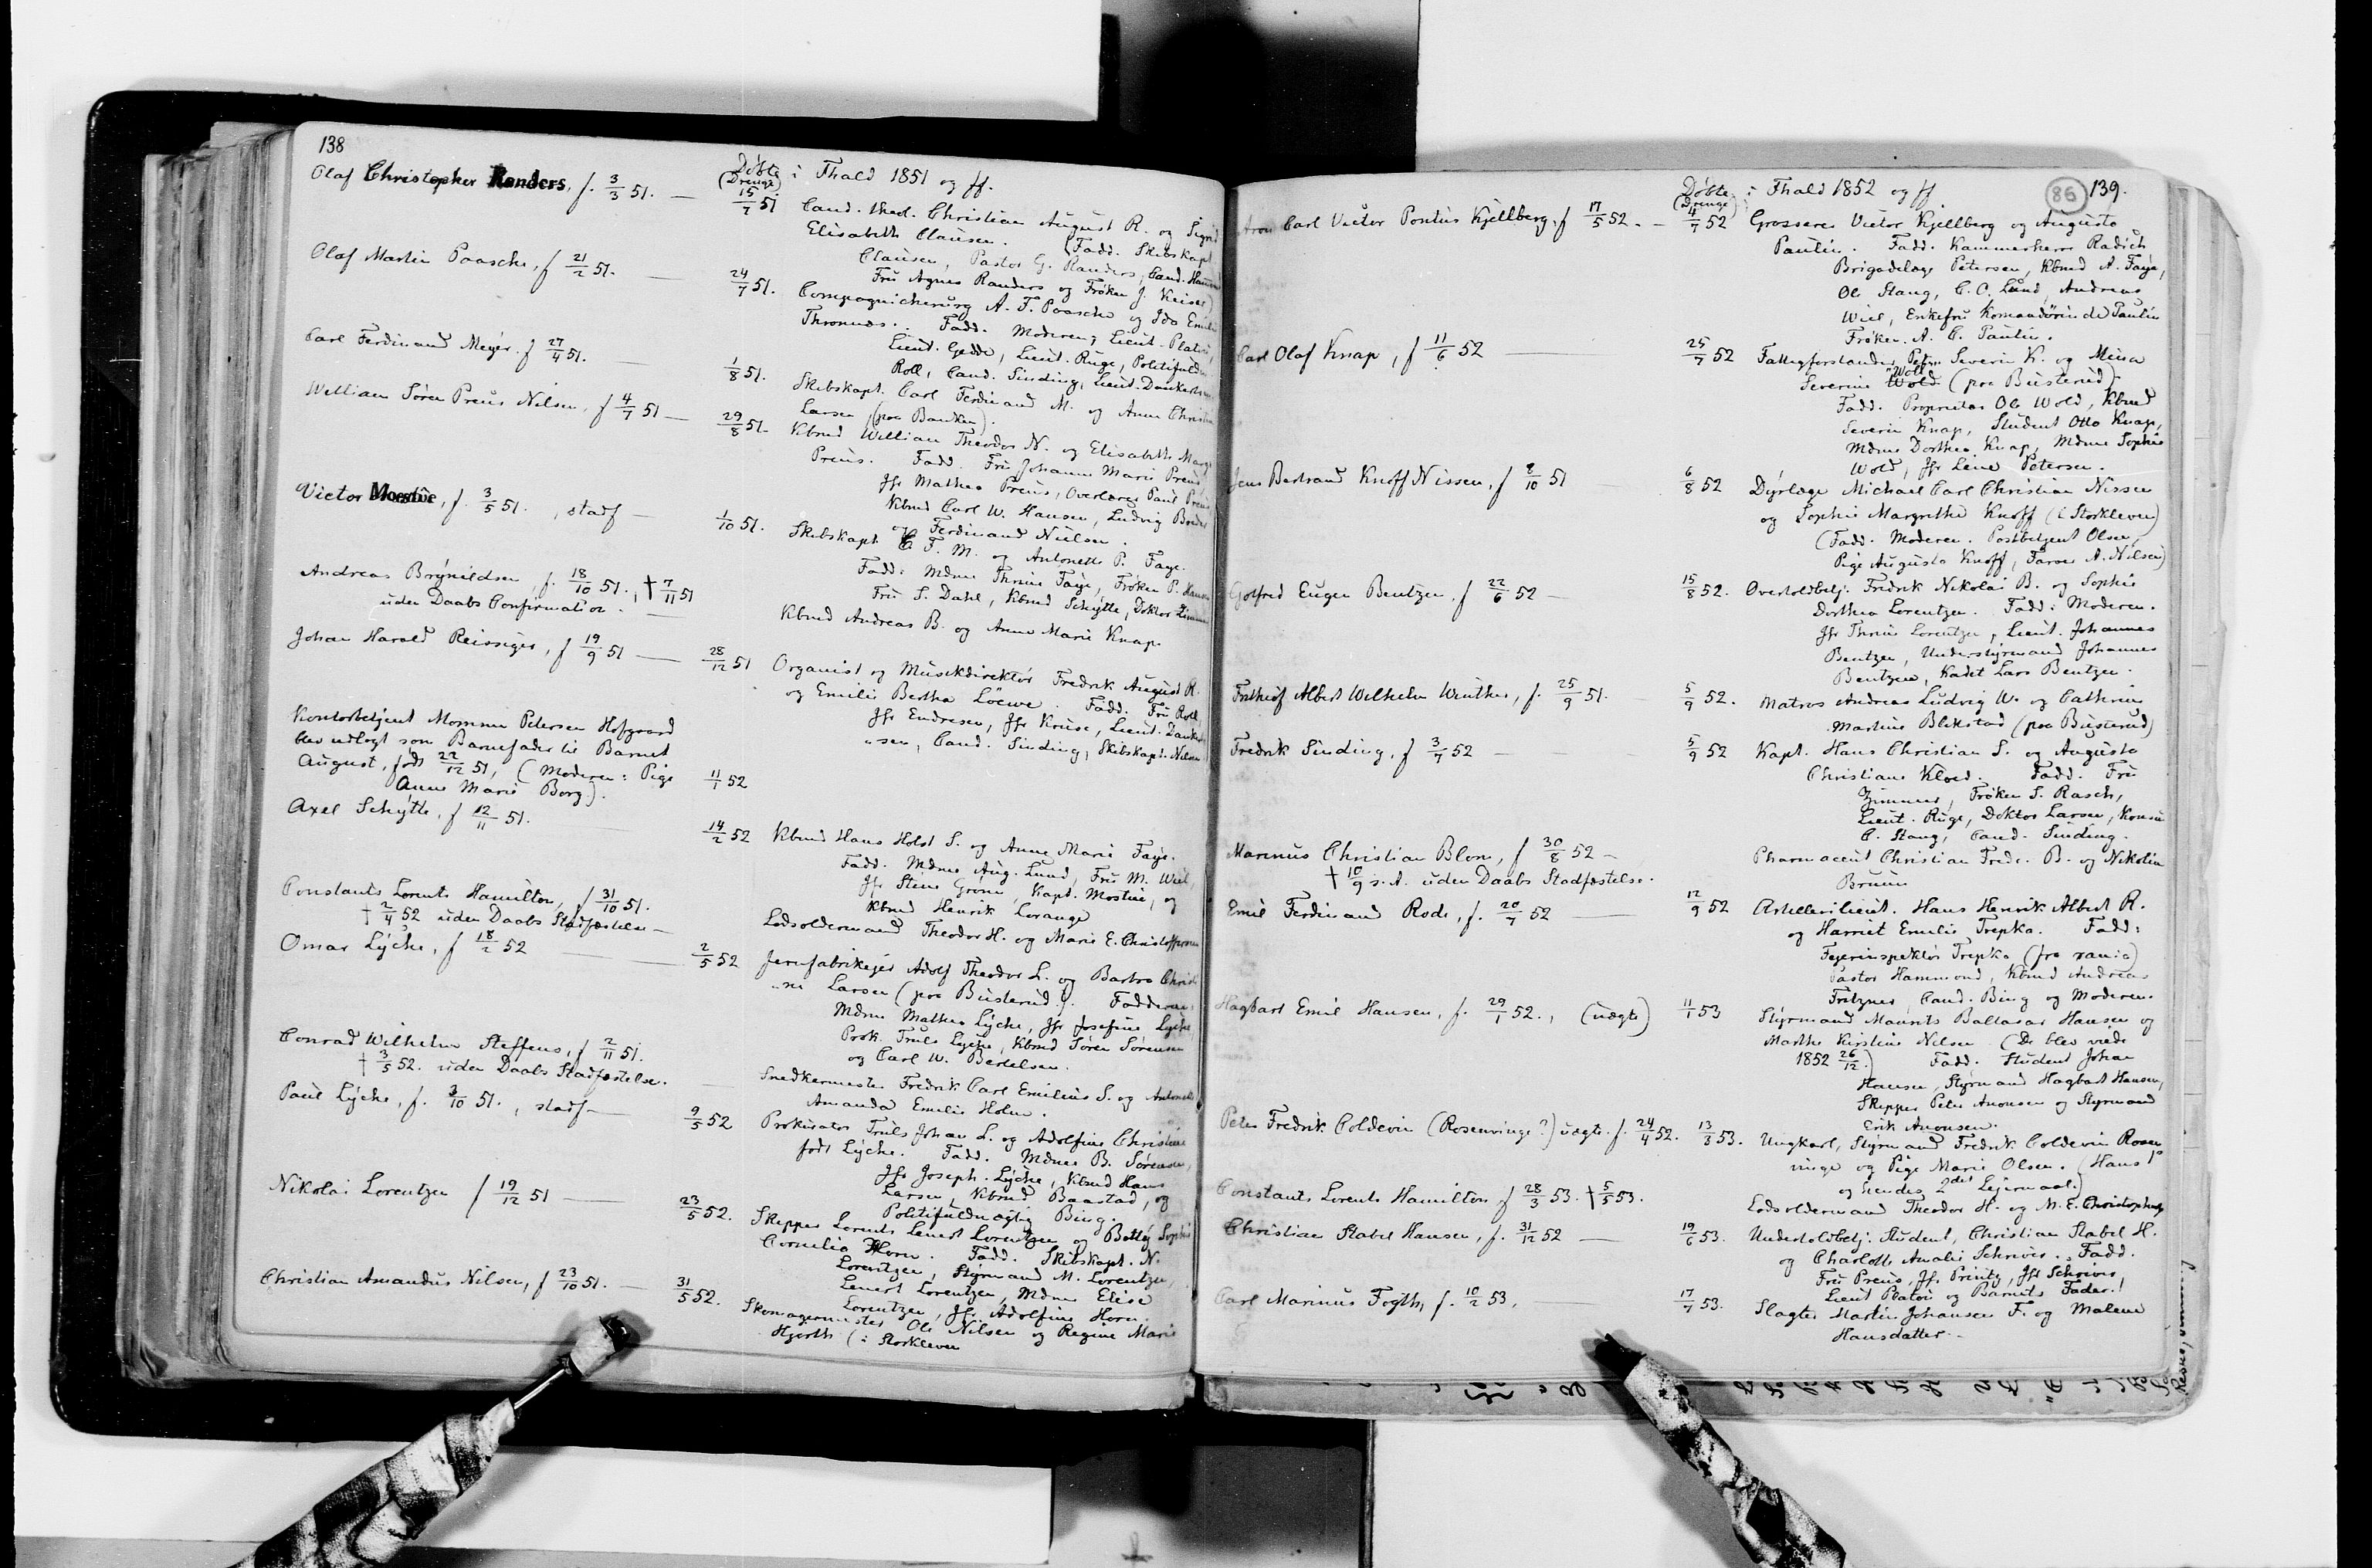 138
Døbte i Fhald 1851 og ff.
(Drenge)
Olaf Christopher Randers, f. 3/3 51. — 15/7 51 Cand. theol. Christian August R. og Sigrid
Elisabeth Clausen. (Fadd. Skibskapt
Clausen, Pastor G. Randers, Cand.
Fru Agnes Randers og Frøken J. Keiser)
Olaf Martin Paasche, f 21/2 51. — 24/7 51. Compagnichirurg A. F. Paasche og Ida Emilie
Thronæs. Fadd. Moderen, Lieut. Platou,
Lieut. Gedde, Lieut. Ruge, Politifuldm
Roll, Cand. Sinding, Lieut.
Carl Ferdinand Meyer. f 27/4 51. — 1/8 51. Skibskapt. Carl Ferdinand M. og Anne Christine
Larsen (paa Banken).
William Søren Preus Nilsen, f 4/7 51 — 29/8 51. Kbmd William Theodor N. og Elisabeth Marg
Preus. Fadd. Fru Johanne Marie Preus,
Jfr Mathea Preus, Overlærer Paul Preus
Kbmd Carl W. Hansen, Ludvig
og Ferdinand Nielsen.
Victor Mostue, f. 3/5 51. , stadf — 1/10 51. Skibskapt. C F. M. og Antonette P. Faye.
Fadd: Mdme Thrine Faye, Frøken P. Hansen
Fru S. Dahl, Kbmd Schytte, Doktor
Andreas Brynildsen, f. 18/10 51., † 7/11 51
uden Daabs Confirmation. — Kbmd Andreas B. og Anne Marie Knap.
Johan Harald Reissiger, f 19/9 51 — 28/12 51 Organist og Musikdirektør Fredrik August R.
og Emilie Bertha Löewe. Fadd. Fru Roll,
Jfr Endresen, Jfr Kruse, Lieut. Dankert
"sen, Cand. Sinding, Skibskapt. Nilsen
Kontorbetjent Momme Petersen Hofgaard
blev udlagt som Barnefader til Barnet
August, født 22/12 51, (Moderen: Pige 11/1 52
Anne Marie Borg).
Axel Schytte, f 12/11 51. 14/2 52 Kbmd Hans Holst S. og Anne Marie Faye.
Fadd. Mdme Aug. Lund, Fru M. Wiel,
Jfr Stine Grøne, Kapt. Mostue, og
Kbmd Henrik Lorange
Constants Lorents Hamilton, f 31/10 51.
† 2/4 52 uden Daabs Stadfæstelse — Lodsoldermand Theodor H. og Marie E. Christoffersen
Omar Lyche, f 18/2 52 — 2/5 52 Jernfabrikeier Adolf Theodor L. og Barbro Christi
"ne Larsen (paa Busterud). Fadderne:
Mdme Mathea Lyche, Jfr Josefine Lyche,
Prok. Truls Lyche, Kbmd Søren Sørensen
og Carl W. Bertelsen.
Conrad Wilhelm Steffens, f 2/11 51.
† 3/5 52. uden Daabs Stadfæstelse. — Snedkermester Fredrik Carl Emilius S. og Antonette
Amanda Emilie Holm.
Paul Lyche, f. 3/10 51. , stadf — 9/5 52 Prokurator Truls Johan L. og Adolfine Christine
født Lyche. Fadd. Mdme B. Sørensen,
Jfr Joseph. Lyche, Kbmd Hans
Larsen, Kbmd Baastad, og
Politifuldmægtig Bing.
Nikolai Lorentzen f 19/12 51 — 23/5 52. Skipper Lorents Lenert Lorentzen og Betty Sophie
Cornelia Horn. Fadd. Skibskapt. N.
Lorentzen, Styrmand M. Lorentzen,
Lenert Lorentzen, Mdme Elise
Lorentzen, Jfr. Adolfine Horn.
Christian Amandus Nilsen, f 23/10 51. — 31/5 52. Skomagermester Ole Nilsen og Regine Marie
Hjorth (i Storkleven
86 139.
Døbte i Fhald 1852 og ff
(Drenge)
Aron Carl Victor Pontus Kjellberg. f 17/5 52. — 4/7 52 Grosserer Victor Kjellberg og Augusta
Paulin. Fadd. Kammerherre Radich
Brigadelæge Petersen, Kbmd A. Faye,
Ole Stang, C. C. Lund, Andreas
Wiel, Enkefru Komandørinde Paulin
Frøken A. C. Paulin.
Carl Olaf Knap, f 11/6 52 — 25/7 52 Fattigforstander Peter Severin K. og Mina
"Woll"
Severine Wold (paa Busterud).
Fadd. Proprietær Ole Wold, Kbmd
Severin Knap, Student Otto Knap,
Mdme Dorthea Knap, Mdme Sophie
Wold, Jfr Lene Petersen.
Jens Bertrand Knoff Nissen, f 8/10 51 — 6/8 52 Dyrlæge Michael Carl Christian Nissen
og Sophie Margrethe Knoff (i Storkleven)
(Fadd. Moderen. Postbetjent Olsen,
Pige Augusta Knoff, Farver A. Nilsen)
Gotfred Eugen Bentzen. f 22/6 52 — 15/8 52. Overtoldbetj. Fredrik Nikolai B. og Sophie
Dorthea Lorentzen. Fadd: Moderen.
Jfr Thrine Lorentzen, Lieut. Johannes
Bentzen, Understyrmand Johannes
Bentzen, Kadet Lars Bentzen.
Frithiof Albert Wilhelm Winther, f. 25/9 51. — 5/9 52. Matros Andreas Ludvig W. og Cathrine
Martine Blikstad (paa Busterud)
Fredrik Sinding, f 3/4 52 — 5/9 52 Kapt. Hans Christian S. og Augusta
Christiane Kloed. Fadd. Fru
Zimmer, Frøken S. Rasch,
Lieut. Ruge, Doktor Larsen, Konsul
C. Stang, Cand. Sinding.
Marinus Christian Blom, f 30/8 52 —
† 10/9 s. A. uden Daabs Stadfæstelse. Pharmaceut Christian Fredr. B. og Nikoline
Bruun
Emil Ferdinand Rode, f. 20/7 52 — 12/9 52 Artillerilieut. Hans Henrik Albert R.
og Harriet Emilie Trepka. Fadd:
Fejerinspektør Trepka (fra xania)
Pastor Hammond, Kbmd Andreas
Fritzner, Cand. Bing og Moderen.
Hagbart Emil Hansen, f. 29/1 52., (uægte) 11/1 53 Styrmand Maurits Baltazar Hansen og
Marthe Kirstine Nilsen (De blev viede
1852 26/12.) Fadd. Student Johan
Hansen, Styrmand Hagbart Hansen,
Skipper Peter Anonsen og Styrmand
Erik Anonsen.
Peter Fredrik Coldevin (Rosenvinge?) uægte. f. 24/4 52. 13/3 53. Ungkarl, Styrmand Fredrik Coldevin Rosen
vinge og Pige Marie Olsen. (Hans 1ste
og hendes 2det Lejermaal.)
Constants Lorents Hamilton f 28/3 53. † 5/5 53. Lodsoldermand Theodor H. og M. E. Christophersen
Christian Stabel Hansen, f. 31/12 52 — 19/6 53. Undertoldbetj. Student, Christian Stabel H.
og Charlotte Amalie Schriver. Fadd.
Fru Preus, Jfr. Printz, Jfr Schriver,
Lieut Platou og Barnets Fader.
Carl Marinus Fogth, f. 10/2 53, — 17/7 53. Slagter Martin Johansen F. og Malene
Hansdatter.